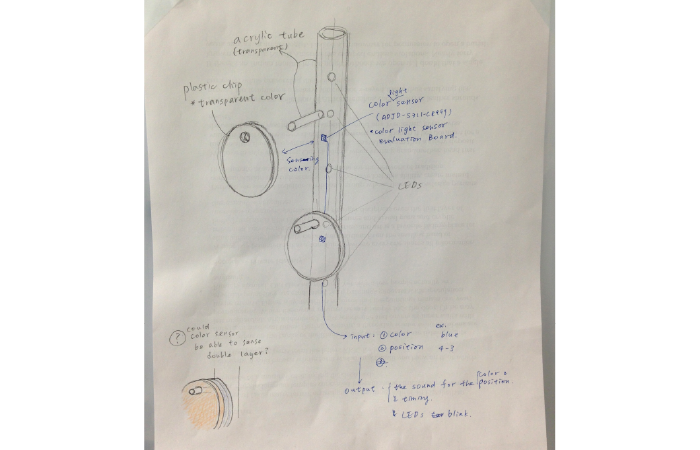 acrylic tube
(transparent)
plastic chip
* transparent color
light
color sensor
(ADJD-S311-CR999)
* color light sensor
evaluation Board.
sensing
color
LEDs
? could
color sensor
be able to sense
double layer?
input: ① color ex. blue
② position 4-3
③
output. the sound for the color &
position.
& timing.
& LEDs blink.